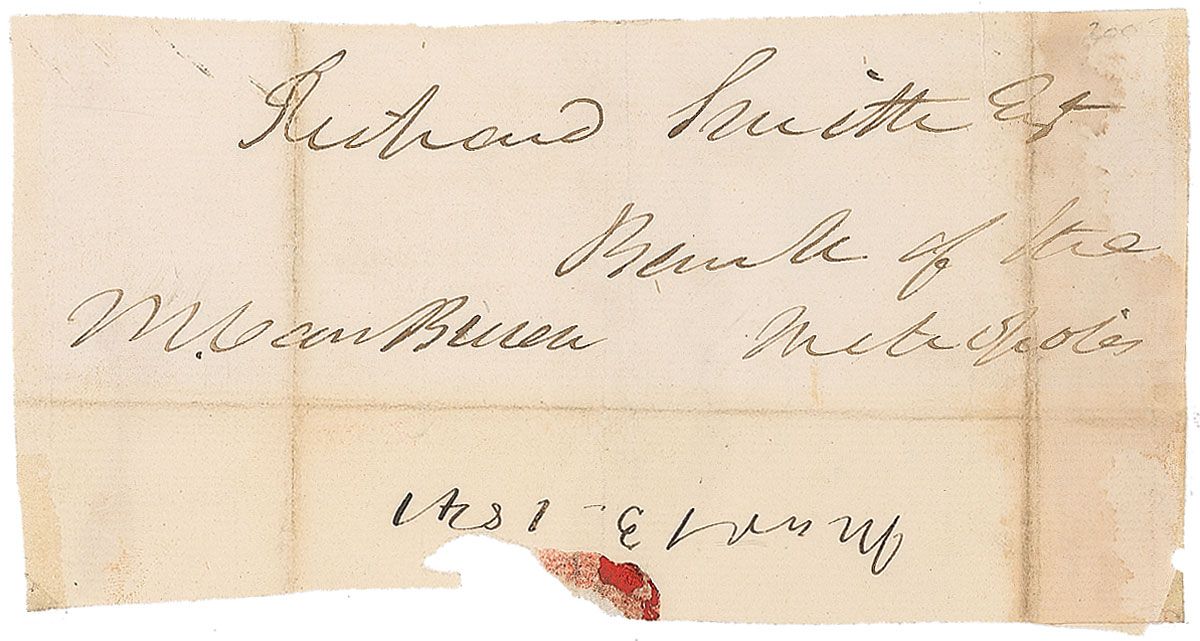 Richard Smith Esq
Bank of the
Metropolis
M. Van Buren
1841